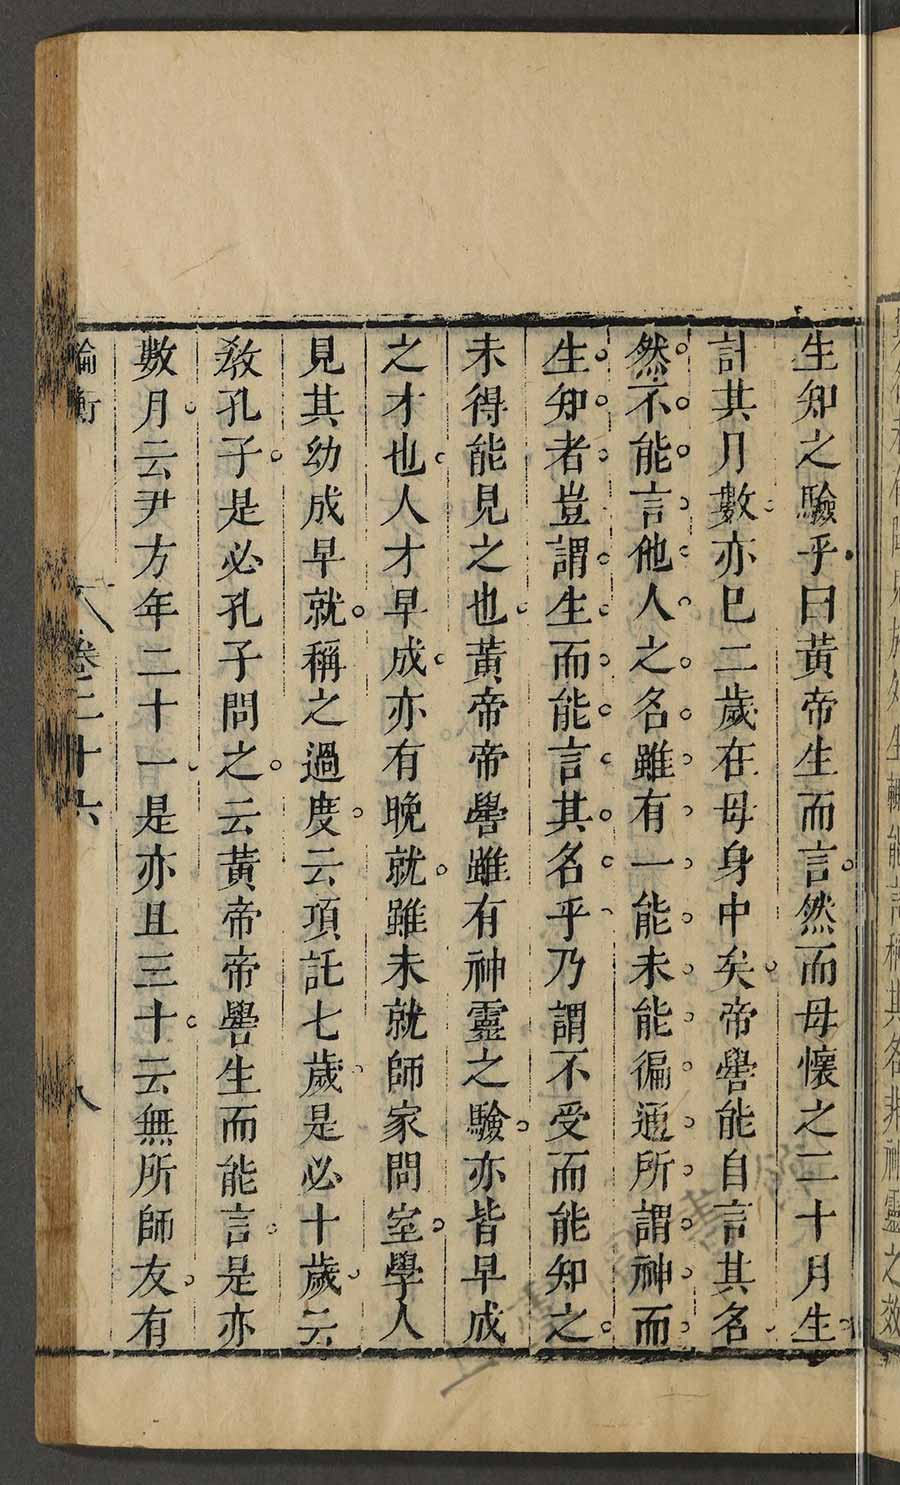 生知之驗乎曰黃帝生而言然而母懷之二十月生
計其月數亦已二歲在母身中矣帝嚳能自言其名
然不能言他人之名雖有一能未能徧通所謂神而
生知者豈謂生而能言其名乎乃謂不受而能知之
未得能見之也黃帝帝嚳雖有神靈之驗亦皆早成
之才也人才早成亦有晚就雖未就師家問室學人
見其幼成早就稱之過度云項託七歲是必十歲云
教孔子是必孔子問之云黃帝帝嚳生而能言是亦
數月云尹方年二十一是亦且三十云無所師友有
論衡
卷二十六
八